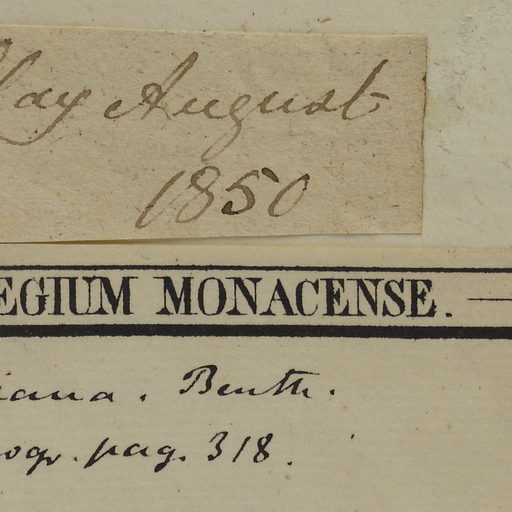 August
1850
EGIUM MONACENSE.
iana. Benth.
ogr. pag. 318.